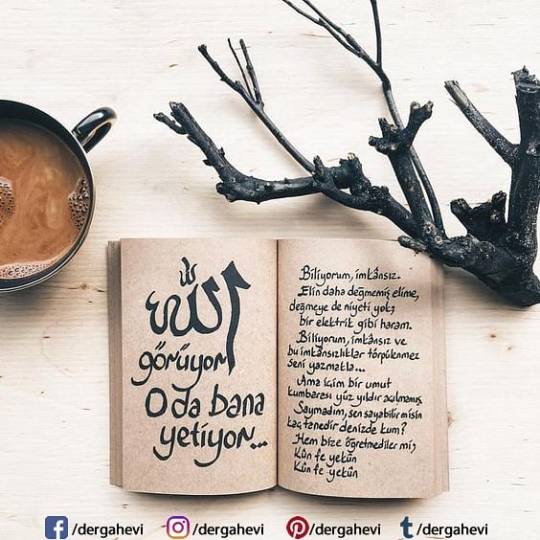 الله
görüyor
O da bana
yetiyor...
Biliyorum, imkânsız.
Elin daha değmemiş elime,
değmeye de niyeti yok;
bir elektrik gibi haram.
Biliyorum, imkânsız ve
bu imkânsızlıklar törpülenmez
seni yazmakla...
Ama içim bir umut
kumbarası yüz yıldır açılmamış
Saymadım, sen sayabilir misin
kaç tanedir denizde kum?
Hem bize öğretmediler mi;
Kûn fe yekûn
Kûn fe yekûn
/dergahevi /dergahevi /dergahevi /dergahevi